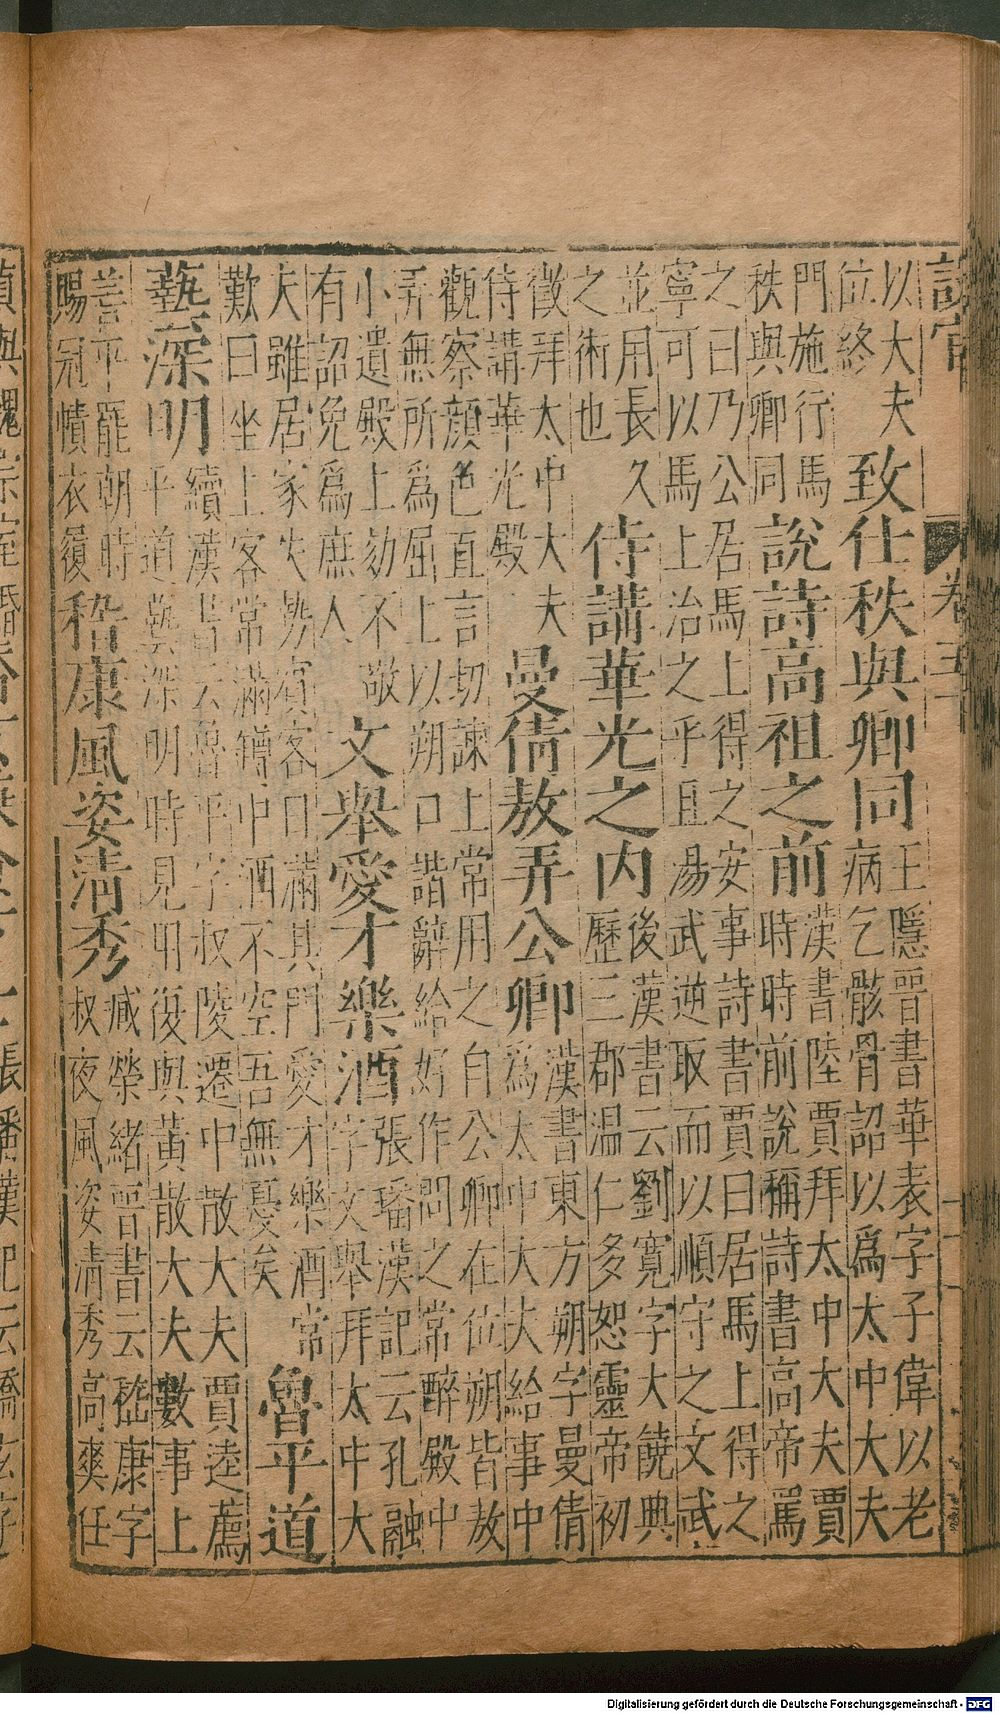 設官
卷五
以大夫
位終
致仕秩與卿同
王隱晉書華表字子偉以老
病乞骸骨詔以爲太中大夫
門施行馬
秩與卿同
說詩高祖之前
漢書陸賈拜太中大夫賈
時時前說稱詩書高帝罵
之曰乃公居馬上得之安事詩書賈曰居馬上得之
寧可以馬上治之乎且湯武逆取而以順守之文武
並用長久
之術也
侍講華光之内
後漢書云劉寬字大饒典
歷三郡温仁多恕靈帝初
徵拜太中大夫
侍講華光殿
曼倩敖弄公卿
漢書東方朔字曼倩
爲太中大夫給事中
觀察顔色直言切諫上常用之自公卿在位朔皆敖
弄無所爲屈上以朔口諧辭給好作問之常醉殿中
小遺殿上劾不敬
有詔免爲庶人
文舉愛才樂酒
張璠漢記云孔融
字文舉拜太中大
夫雖居家失勢賔客日滿其門愛才樂酒常
歎曰坐上客常滿罇中酒不空吾無憂矣
魯平道
藝深明
續漢書云魯平字叔陵遷中散大夫賈逵薦
平道藝深明時見用復與黃散大夫數事上
善平罷朝時
賜冠幘衣履
嵇康風姿清秀
臧榮緒晉書云嵇康字
叔夜風姿清秀高爽任
Digitalisierung gefördert durch die Deutsche Forschungsgemeinschaft - DFG